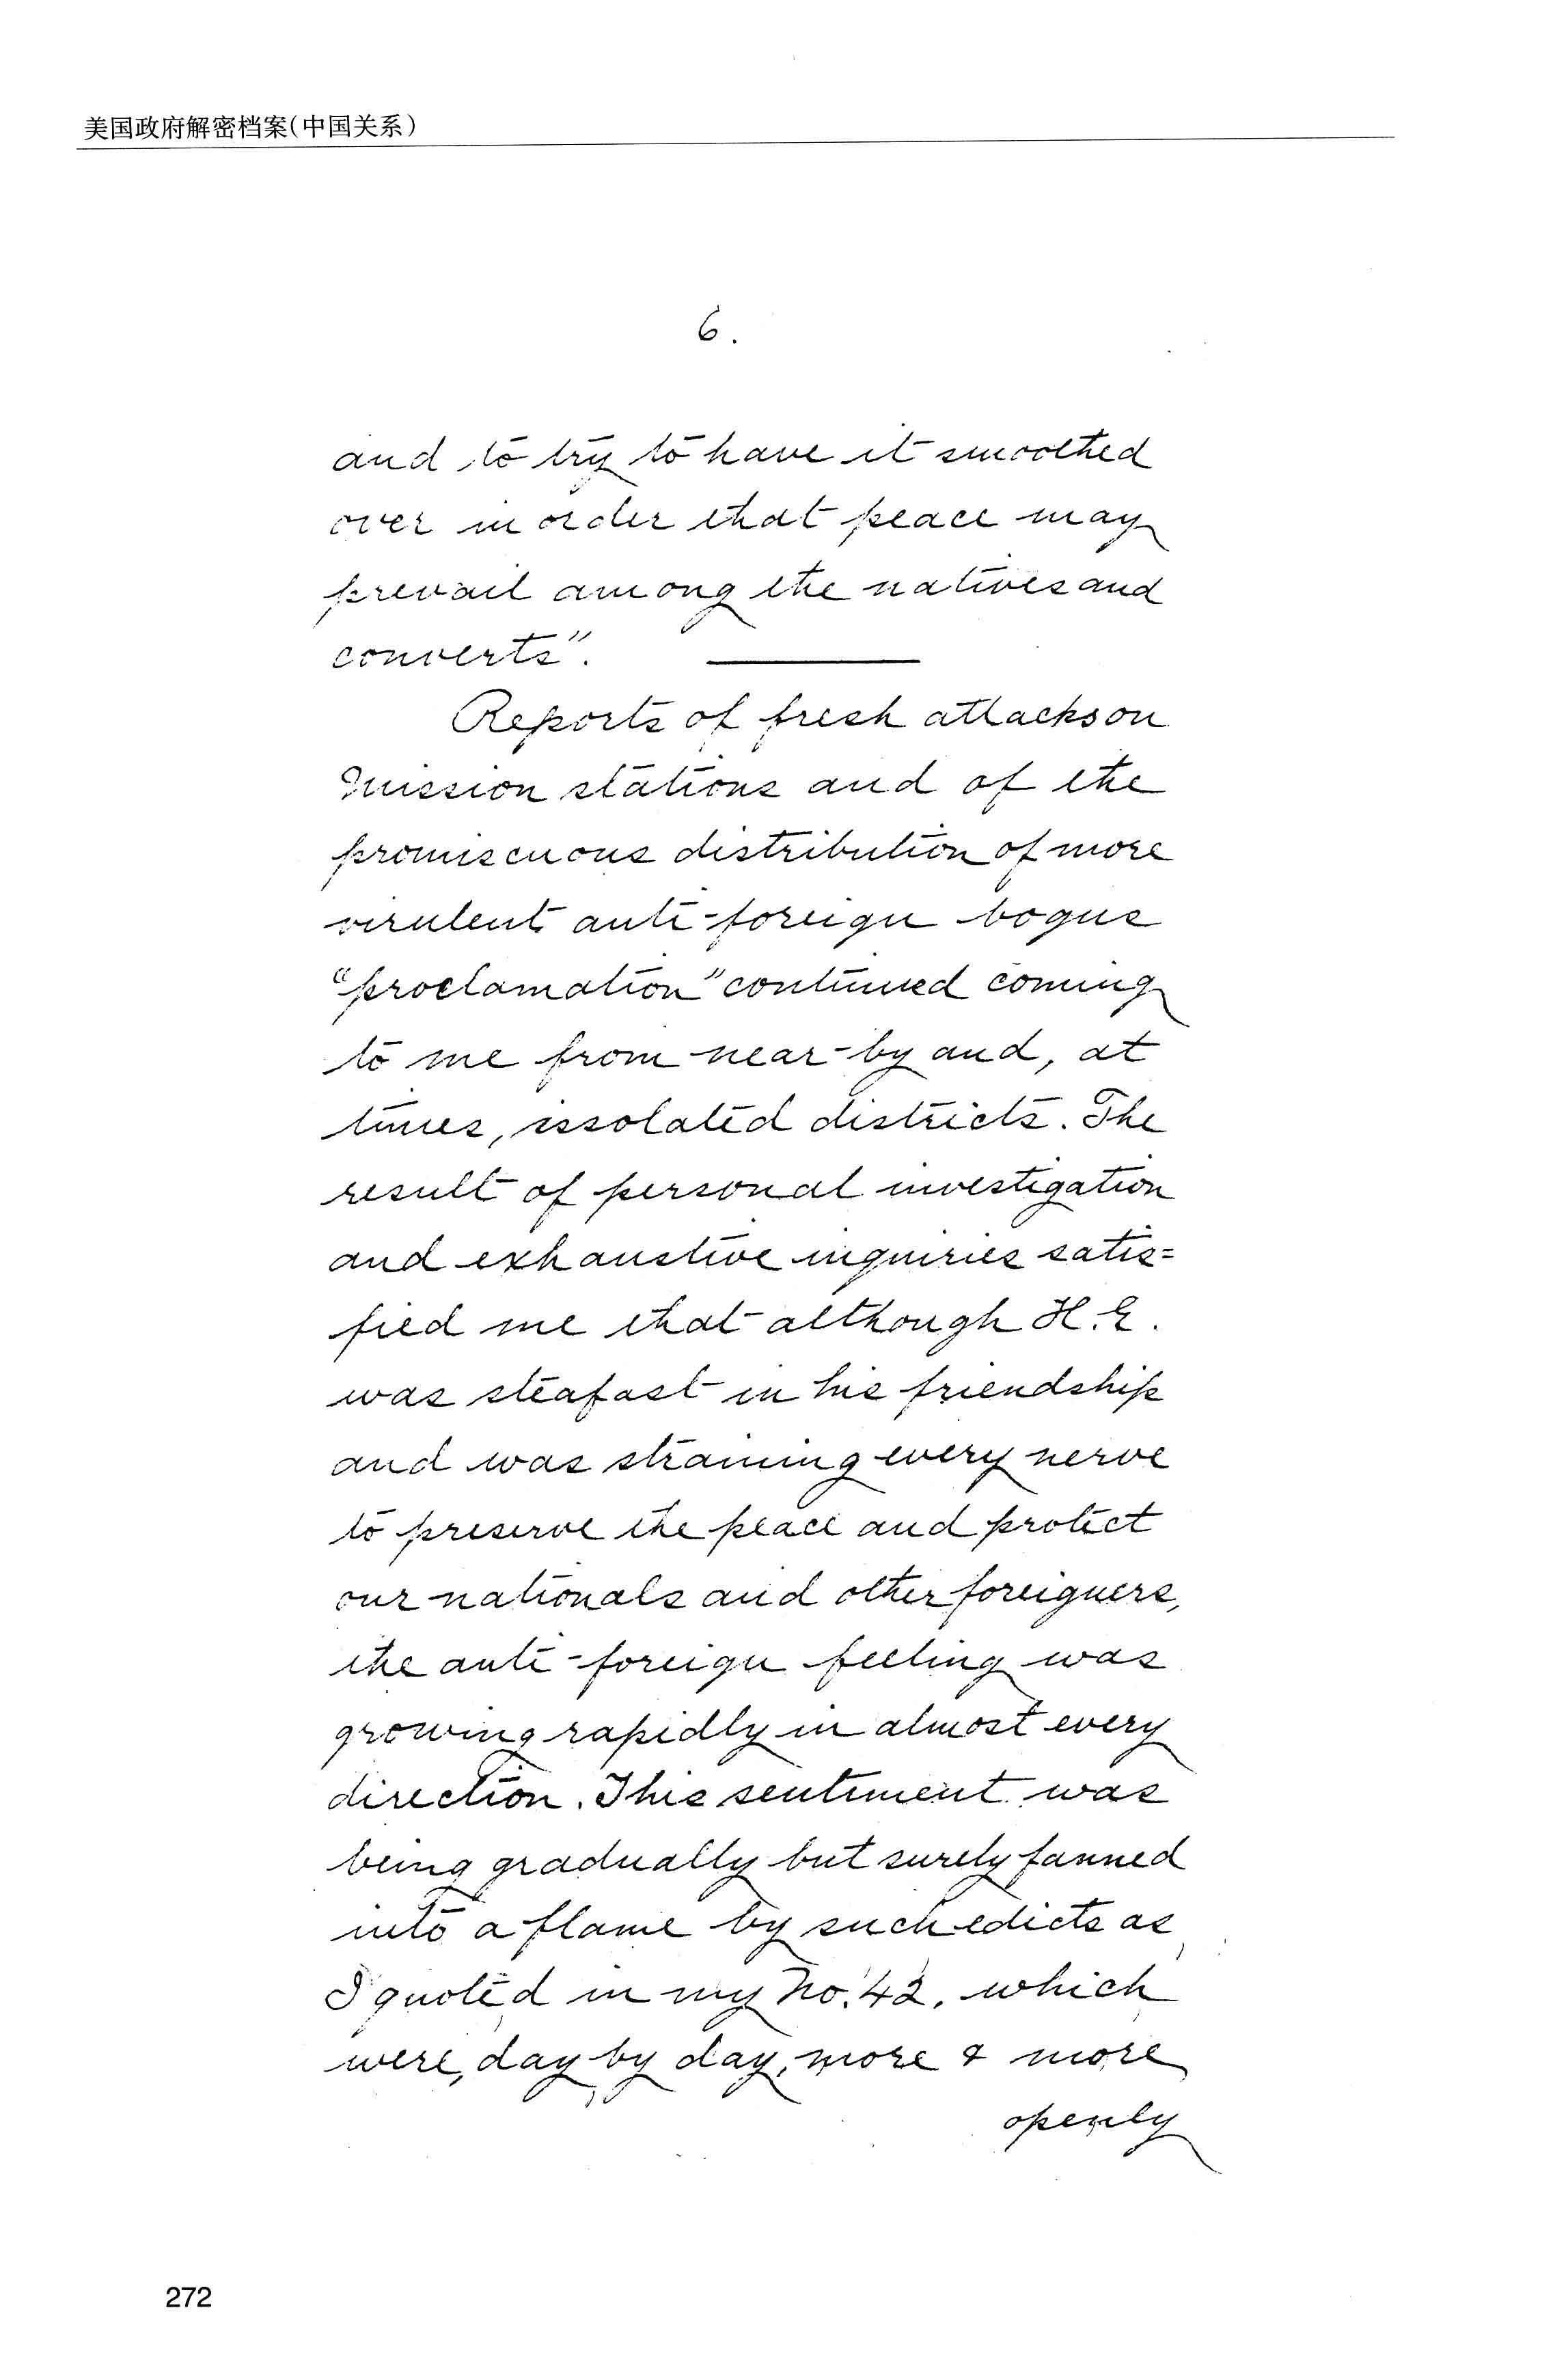 美国政府解密档案(中国关系)
6.
and to try to have it smoothed
over in order that peace may
prevail among the natives and
converts".
Reports of fresh attacks on
Mission stations and of the
promiscuous distribution of more
virulent anti-foreign bogus
"proclamation" continued coming
to me from near-by and, at
times, issolated districts. The
result of personal investigation
and exhaustive inquiries satis=
fied me that although H.E.
was steafast in his friendship
and was straining every nerve
to preserve the peace and protect
our nationals and other foreigners,
the anti-foreign feeling was
growing rapidly in almost every
direction. This sentiment was
being gradually but surely fanned
into a flame by such edicts as
I quoted in my No. 42, which
were, day by day, more & more
openly
272